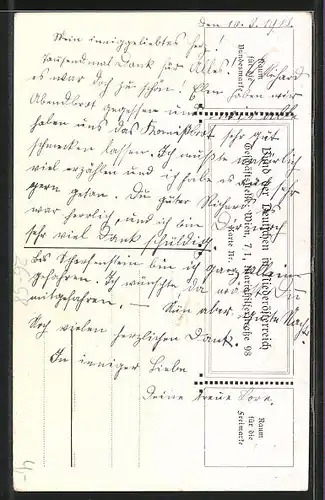 den 10. 8. 1918.
Mein inniggeliebtes
Tausendmal Dank für Alles! Richard
es war doch zu schön! Eben haben wir
Abendbrot gegessen und
haben uns das Komißbrot sehr gut
schmecken lassen. Ich mußte natürlich
viel erzählen und ich habe es auch sehr
gern getan. Du guter Richard
war herrlich, und ich bin Dir noch
sehr viel Dank schuldig.
bis bin ich ganz allein
gefahren. Ich wünschte da wärst Du
mitgefahren. — Nun aber Gute Nacht
Noch vielen herzlichen Dank.
In inniger Liebe
Deine treue Dora.
Raum
für die
Bundesmarke
Bund der Deutschen in Niederösterreich
Geschäftsstelle: Wien, 7/1, Mariahilferstraße 98
Karte Nr.
Raum
für die
Freimarke